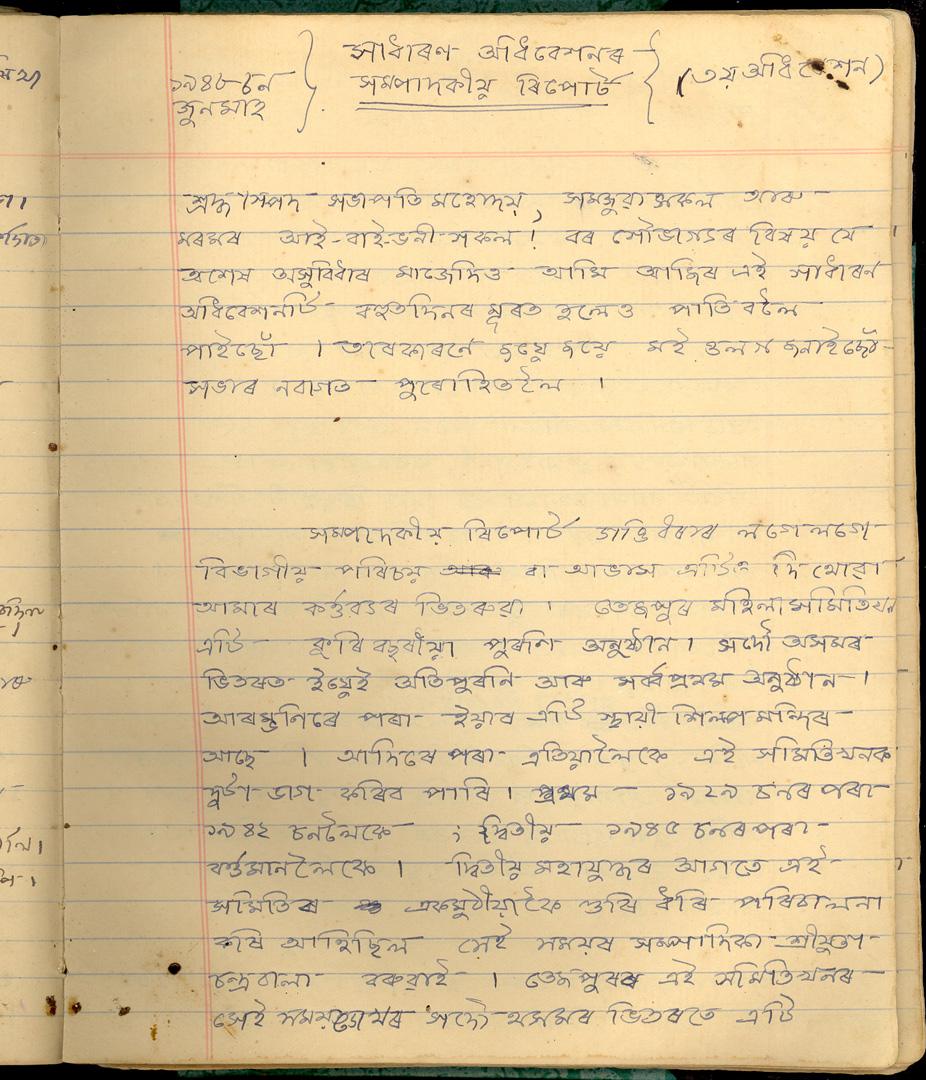 সাধাৰণ অধিবেশনৰ
১৯৪৮ চন সম্পাদকীয় ৰিপোৰ্ট (৩য় অধিবেশন)
জুন মাহ
শ্ৰদ্ধাস্পদ সভাপতি মহোদয়, সমজুৱা সকল আৰু
মৰমৰ আই-বাই-ভনী-সকল! বৰ সৌভাগ্যৰ বিষয় যে
অশেষ অসুবিধাৰ মাজেদিও আমি আজিৰ এই সাধাৰণ
অধিবেশনটি বহুতদিনৰ মূৰত হলেও পাতিবলৈ
পাইছোঁ । তাৰেকাৰনে হৃদয়ে মই ওলগ জনাইছোঁ-
সভাৰ নৱাগত পুৰোহিতলৈ ।
সম্পাদকীয় ৰিপোৰ্ট দাঙি ধৰাৰ লগে লগে
বিভাগীয় পৰিচয় বা আভাস এটিও দি থোৱা
আমাৰ কৰ্ত্তব্যৰ ভিতৰুৱা । তেজপুৰ মহিলা সমিতিখন
এটি কুৰি বছৰীয়া পুৰণি অনুষ্ঠান। সদৌ অসমৰ
ভিতৰত ইয়েই অতি পুৰনি আৰু সৰ্ব্বপ্ৰথম অনুষ্ঠান ।
আৰম্ভনিৰে পৰা ইয়াৰ এটি স্থায়ী শিল্প মন্দিৰ
আছে । আদিৰে পৰা এতিয়ালৈকে এই সমিতিখনক
দুটা ভাগ কৰিব পাৰি। প্ৰথম — ১৯২৯ চনৰ পৰা
১৯৪২ চনলৈকে ; দ্বিতীয় ১৯৪৫ চনৰ পৰা
বৰ্ত্তমানলৈকে । দ্বিতীয় মহাযুদ্ধৰ আগতে এই
সমিতিৰ একমুঠীয়াকৈ গুৰি ধৰি পৰিচালনা
কৰি আহিছিল সেই সময়ৰ সম্পাদিকা শ্ৰীযুতা
চন্দ্ৰবালা বৰুৱাই । তেজপুৰৰ এই সমিতিখনৰ
সেই সময়ছোৱাৰ সদৌ অসমৰ ভিতৰতে এটি